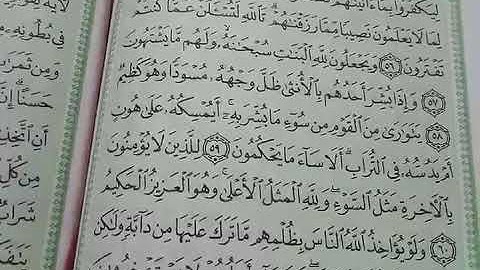 لِيَكْفُرُوا۟ بِمَآ ءَاتَيْنَٰهُمْ
لِمَا لَا يَعْلَمُونَ نَصِيبًا مِّمَّا رَزَقْنَٰهُمْ ۗ تَٱللَّهِ لَتُسْـَٔلُنَّ عَمَّا كُنتُمْ
تَفْتَرُونَ ٥٦ وَيَجْعَلُونَ لِلَّهِ ٱلْبَنَٰتِ سُبْحَٰنَهُۥ ۙ وَلَهُم مَّا يَشْتَهُونَ
٥٧ وَإِذَا بُشِّرَ أَحَدُهُم بِٱلْأُنثَىٰ ظَلَّ وَجْهُهُۥ مُسْوَدًّا وَهُوَ كَظِيمٌ
٥٨ يَتَوَٰرَىٰ مِنَ ٱلْقَوْمِ مِن سُوٓءِ مَا بُشِّرَ بِهِۦٓ ۚ أَيُمْسِكُهُۥ عَلَىٰ هُونٍ
أَمْ يَدُسُّهُۥ فِى ٱلتُّرَابِ ۗ أَلَا سَآءَ مَا يَحْكُمُونَ ٥٩ لِلَّذِينَ لَا يُؤْمِنُونَ
بِٱلْءَاخِرَةِ مَثَلُ ٱلسَّوْءِ ۖ وَلِلَّهِ ٱلْمَثَلُ ٱلْأَعْلَىٰ ۚ وَهُوَ ٱلْعَزِيزُ ٱلْحَكِيمُ
٦٠ وَلَوْ يُؤَاخِذُ ٱللَّهُ ٱلنَّاسَ بِظُلْمِهِم مَّا تَرَكَ عَلَيْهَا مِن دَآبَّةٍ وَلَٰكِن
فِى بُطُونِهِۦ
وَمِن ثَمَرَٰ
حَسَنًا ۗ إِنَّ
أَنِ ٱتَّخِذِ
مِن كُلِّ
شَرَابٌ